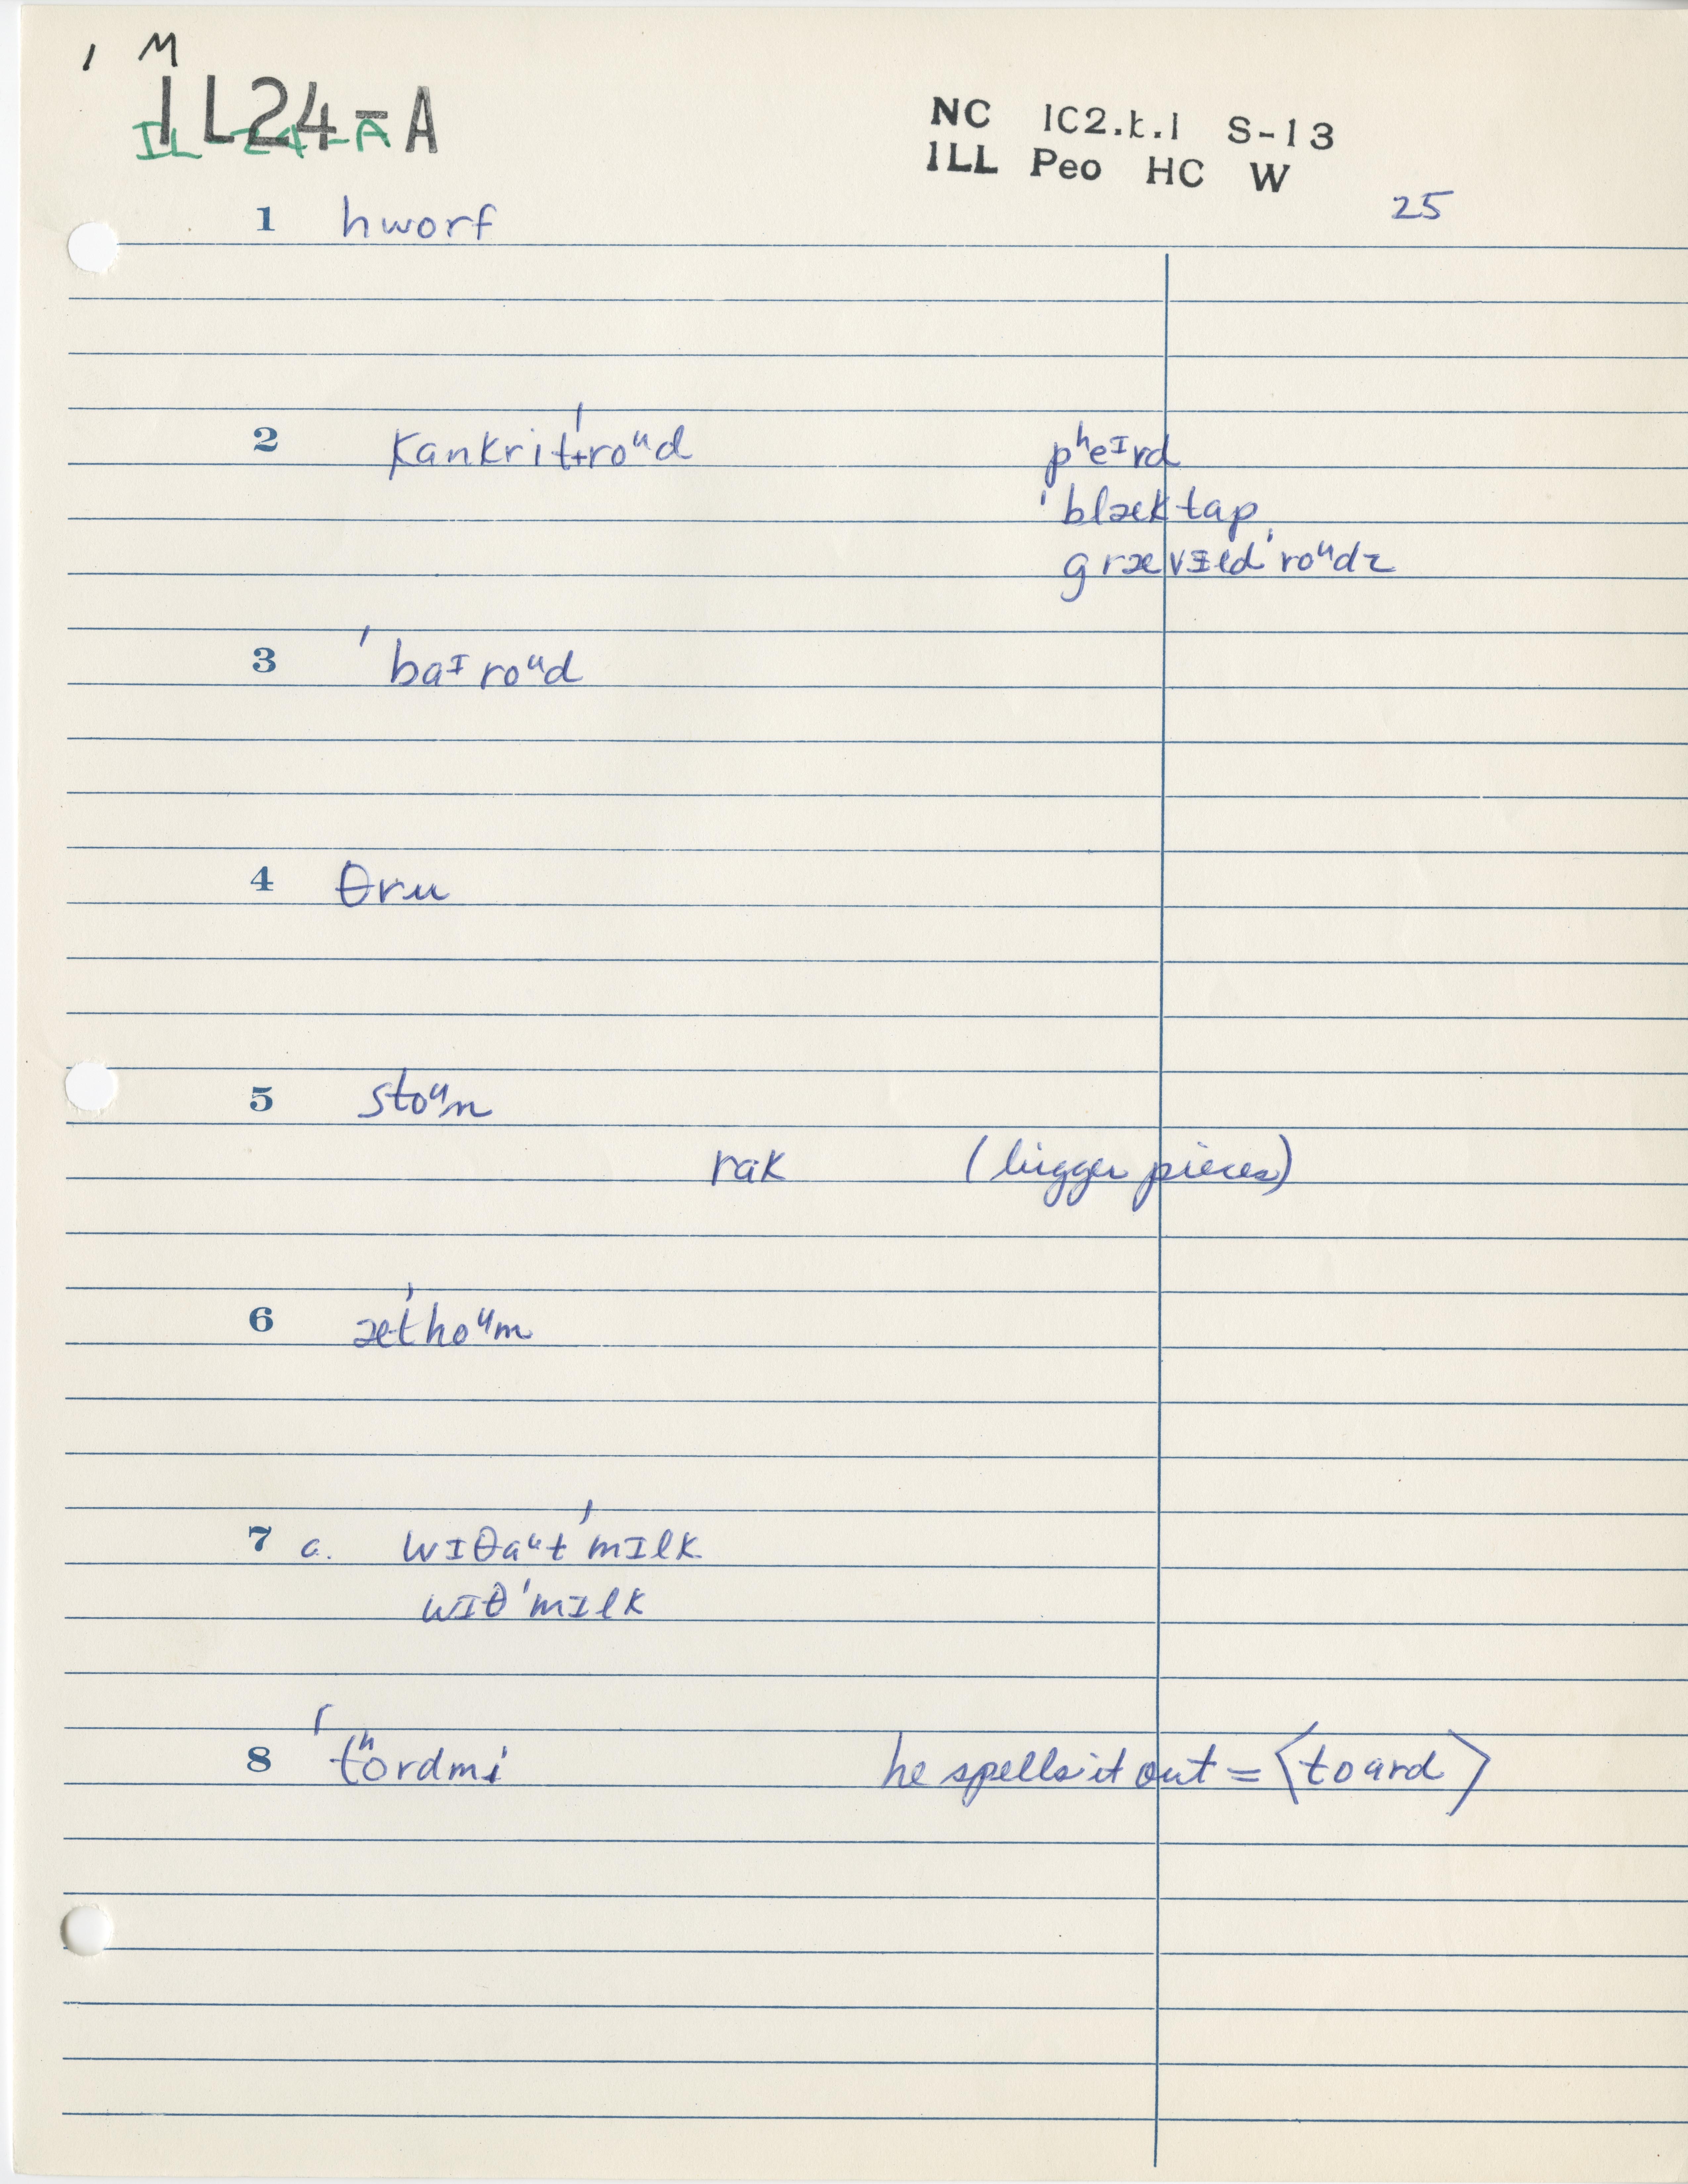 1 M
1L24-A
IL 24-A
NC 1C2.k.1 S-13
ILL Peo HC W
25
1 hworf
2 kankrit+ˈroᵘd pʰeᴵrd
ˈblæktap
grævɪld ˈroᵘdz
3 ˈbaᴵroᵘd
4 θru
5 stoᵘn
rak (bigger pieces)
6 ætˈhoᵘm
7 a. wɪθaᵘtˈmɪlk
wɪθˈmɪlk
8 ˈtʰordmi he spells it out = ⟨toard⟩